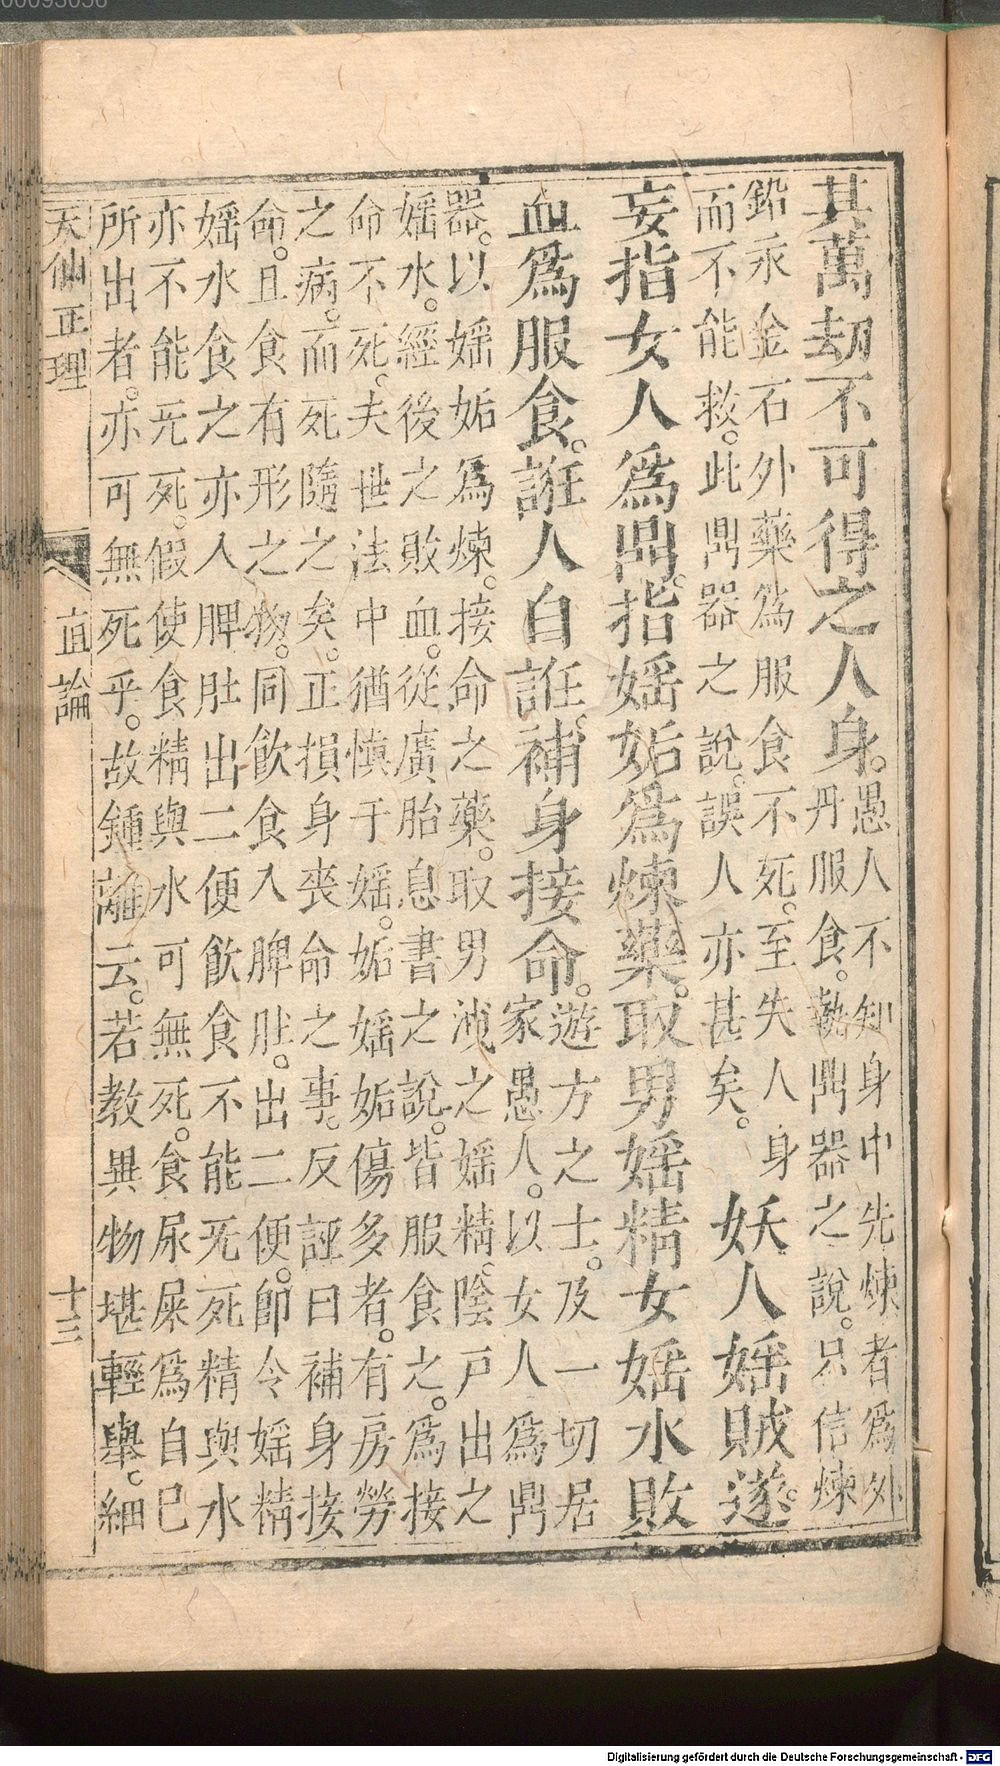 其萬劫不可得之人身。愚人不知身中先煉者爲外
丹服食。執鼎器之說。只信煉
鉛汞金石外藥爲服食不死。至失人身
而不能救。此鼎器之說。誤人亦甚矣。
妖人婬賊遂。
妄指女人爲鼎。指婬姤爲煉藥。取男婬精女婬水敗
血爲服食。誑人自誑。補身接命。遊方之士。及一切居
家愚人。以女人爲鼎
器。以婬姤爲煉。接命之藥。取男洩之婬精。陰戸出之
婬水。經後之敗血。從廣胎息書之說。皆服食之。爲接
命不死。夫世法中猶慎于婬。姤婬姤傷多者。有房勞
之病。而死隨之矣。正損身喪命之事。反誣曰補身接
命。且食有形之物。同飲食入脾肚。出二便。即令婬精
婬水食之亦入脾肚出二便飲食不能旡死精與水
亦不能旡死。假使食精與水可無死。食尿屎爲自己
所出者。亦可無死乎。故鍾離云。若教異物堪輕舉。細
天仙正理 直論 十三
00093056
Digitalisierung gefördert durch die Deutsche Forschungsgemeinschaft - DFG